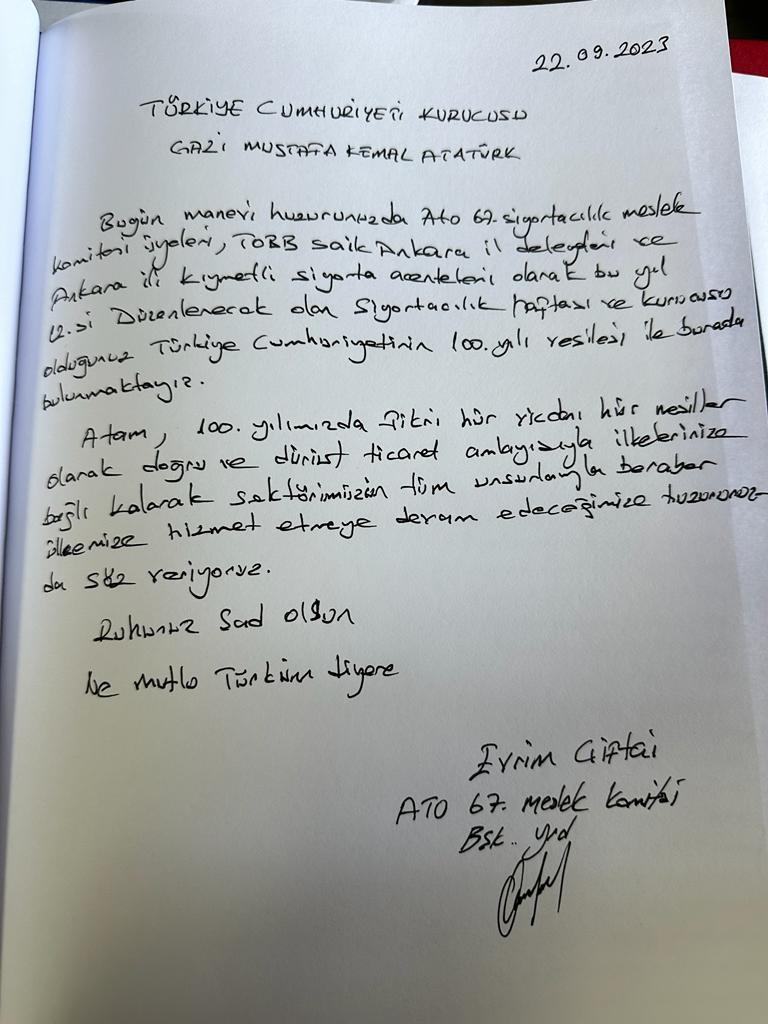 22.09.2023
TÜRKİYE CUMHURİYETİ KURUCUSU
GAZİ MUSTAFA KEMAL ATATÜRK
Bugün manevi huzurunuzda Ato 67. sigortacılık meslek
komitesi üyeleri, TOBB saik Ankara il delegeleri ve
Ankara ili kıymetli sigorta acenteleri olarak bu yıl
12.si Düzenlenecek olan Sigortacılık haftası ve kurucusu
olduğunuz Türkiye Cumhuriyetinin 100. yılı vesilesi ile burada
bulunmaktayız.
Atam, 100. yılımızda fikri hür vicdanı hür nesiller
olarak doğru ve dürüst ticaret anlayışıyla ilkelerinize
bağlı kalarak sektörümüzün tüm unsurlarıyla beraber
ülkemize hizmet etmeye devam edeceğimize huzurunuz-
da söz veriyoruz.
Ruhunuz Şad olsun
Ne mutlu Türküm diyene
Evrim Çiftçi
ATO 67. meslek komitesi
Bşk. yrd